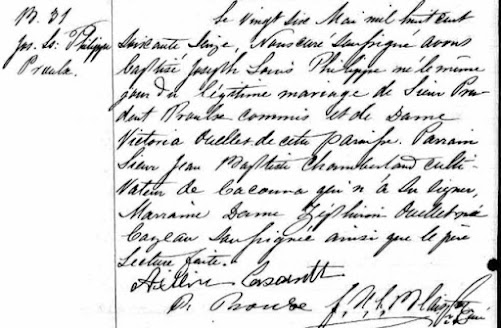 B. 31
Jos. Ls. Philippe
Proulx
Le vingt six Mai mil huit cent
soixante seize, Nous curé soussigné avons
baptisé Joseph Louis Philippe né le même
jour du légitime mariage de Sieur Pru
dent Proulx commis et de Dame
Victoria Ouellet de cette paroisse. Parrain
Sieur Jean Baptiste Chamberland culti
vateur de Cacouna qui n'a su signer,
Marraine Dame Zéphirin Ouellet née
soussignée ainsi que le père
Lecture faite.
P. Proulx J. N.